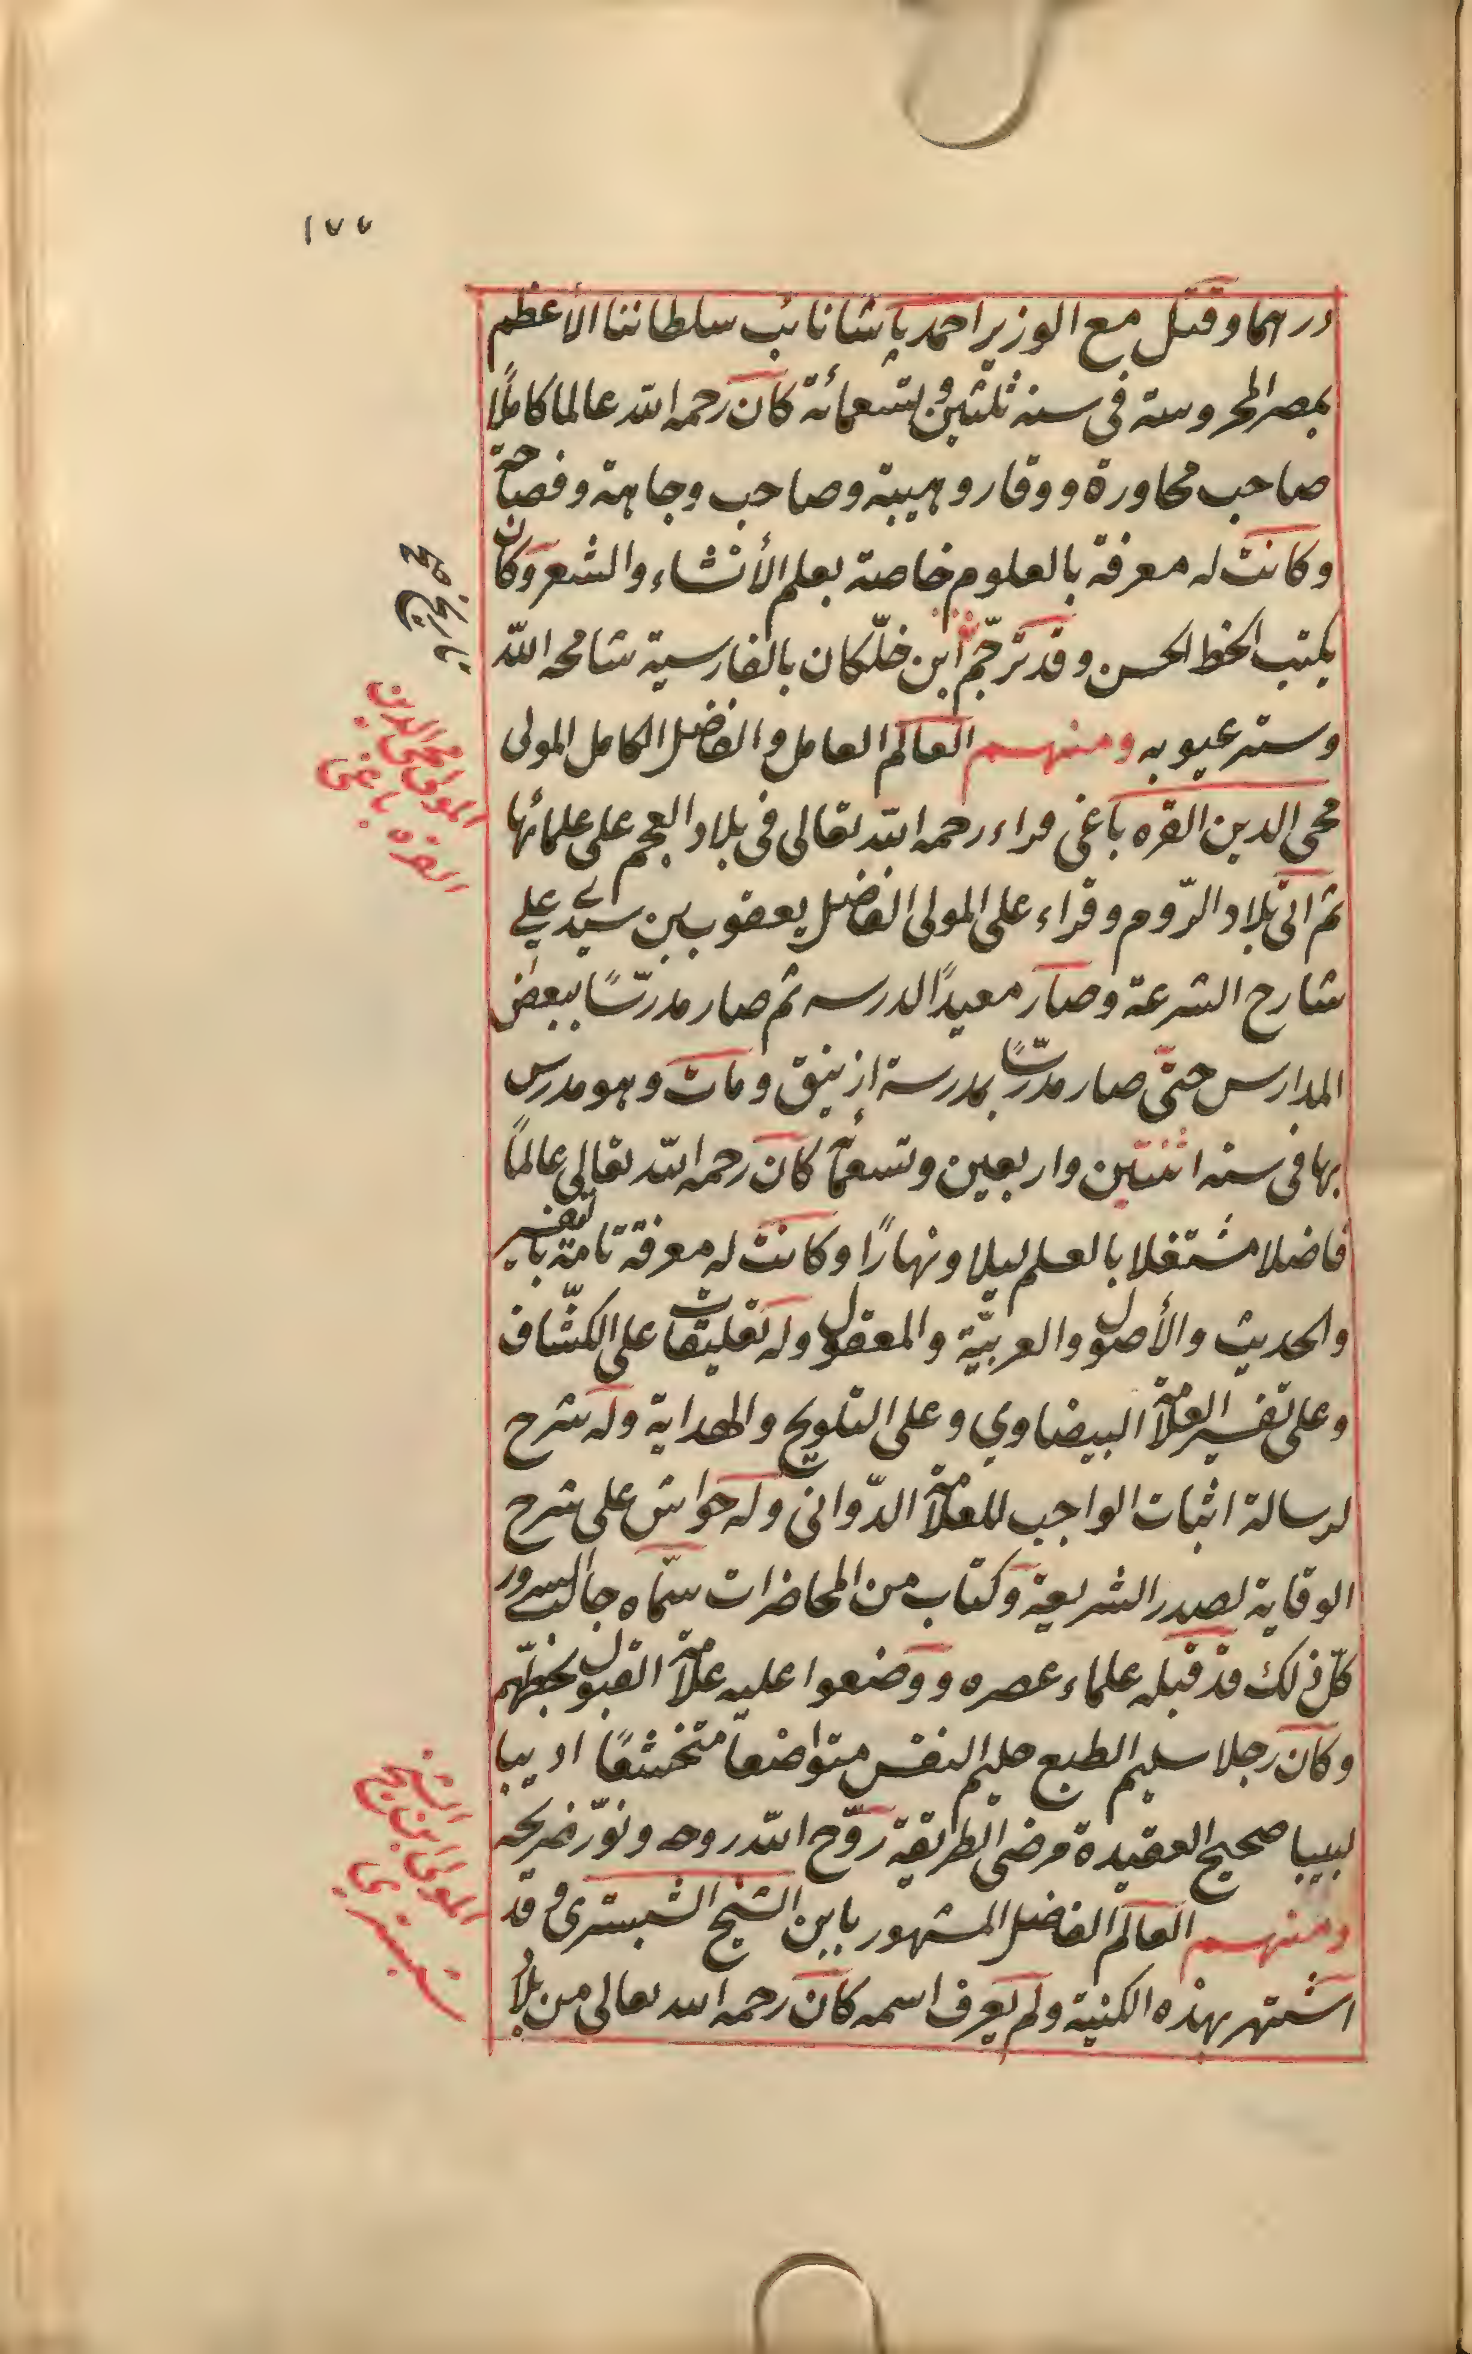 ١٧٧
درهما وقتل مع الوزير احمد باشا نائب سلطاننا الأعظم
بمصر المحروسة في سنة ثلثين وتسعمائة كان رحمه الله عالما كاملًا
صاحب محاورة ووقار وهيبة وصاحب وجاهة وفصاحة
وكانت له معرفة بالعلوم خاصة بعلم الأنشاء والشعر وكان
يكتب الخط الحسن وقد ترجّم ابن خلّكان بالفارسية سامحه الله
وستر عيوبه ومنهم العالم العامل والفاضل الكامل المولى
محي الدين القره باغى قراء رحمه الله تعالى فى بلاد العجم على علمائها
ثم اتى بلاد الرّوم وقراء على المولى الفاضل يعقوب بن سيدي على
شارح الشرعة وصار معيدًا لدرسه ثم صار مدرّسًا ببعض
المدارس حتّى صار مدرّسًا بمدرسة ازنيق ومات وهو مدرس
بها فى سنه اثنتين واربعين وتسعمأئة كان رحمه الله تعالى عالمًا
فاضلا مشتغلا بالعلم ليلا ونهارًا وكانت له معرفة تامة بالتفسير
والحديث والأصول والعربيّة والمعقول وله تعليقات على الكشّاف
وعلى تفسير العلامة البيضاوي وعلى التلويح والهداية وله شرح
لرسالة اثبات الواجب للعلامة الدّوانى وله حواش على شرح
الوقاية لصدر الشريعة وكتاب من المحاضرات سمّاه جالب السرور
كلّ ذلك قد قبله علماء عصره ووضعوا عليه علامة القبول بخطّهم
وكان رجلا سليم الطبع حليم النفس متواضعاً متخشعًا اديبا
لبيبا صحيح العقيدة مرضى الطريقة روّح الله روحه ونوّر ضريحه
ومنهم العالم الفاضل المشهور بابن الشيخ الشبسترى وقد
اشتهر بهذه الكنية ولم يعرف اسمه كان رحمه الله تعالى من بلاد
المولى محى الدين
القره باغى
المولى ابن الشيخ
شبسترى